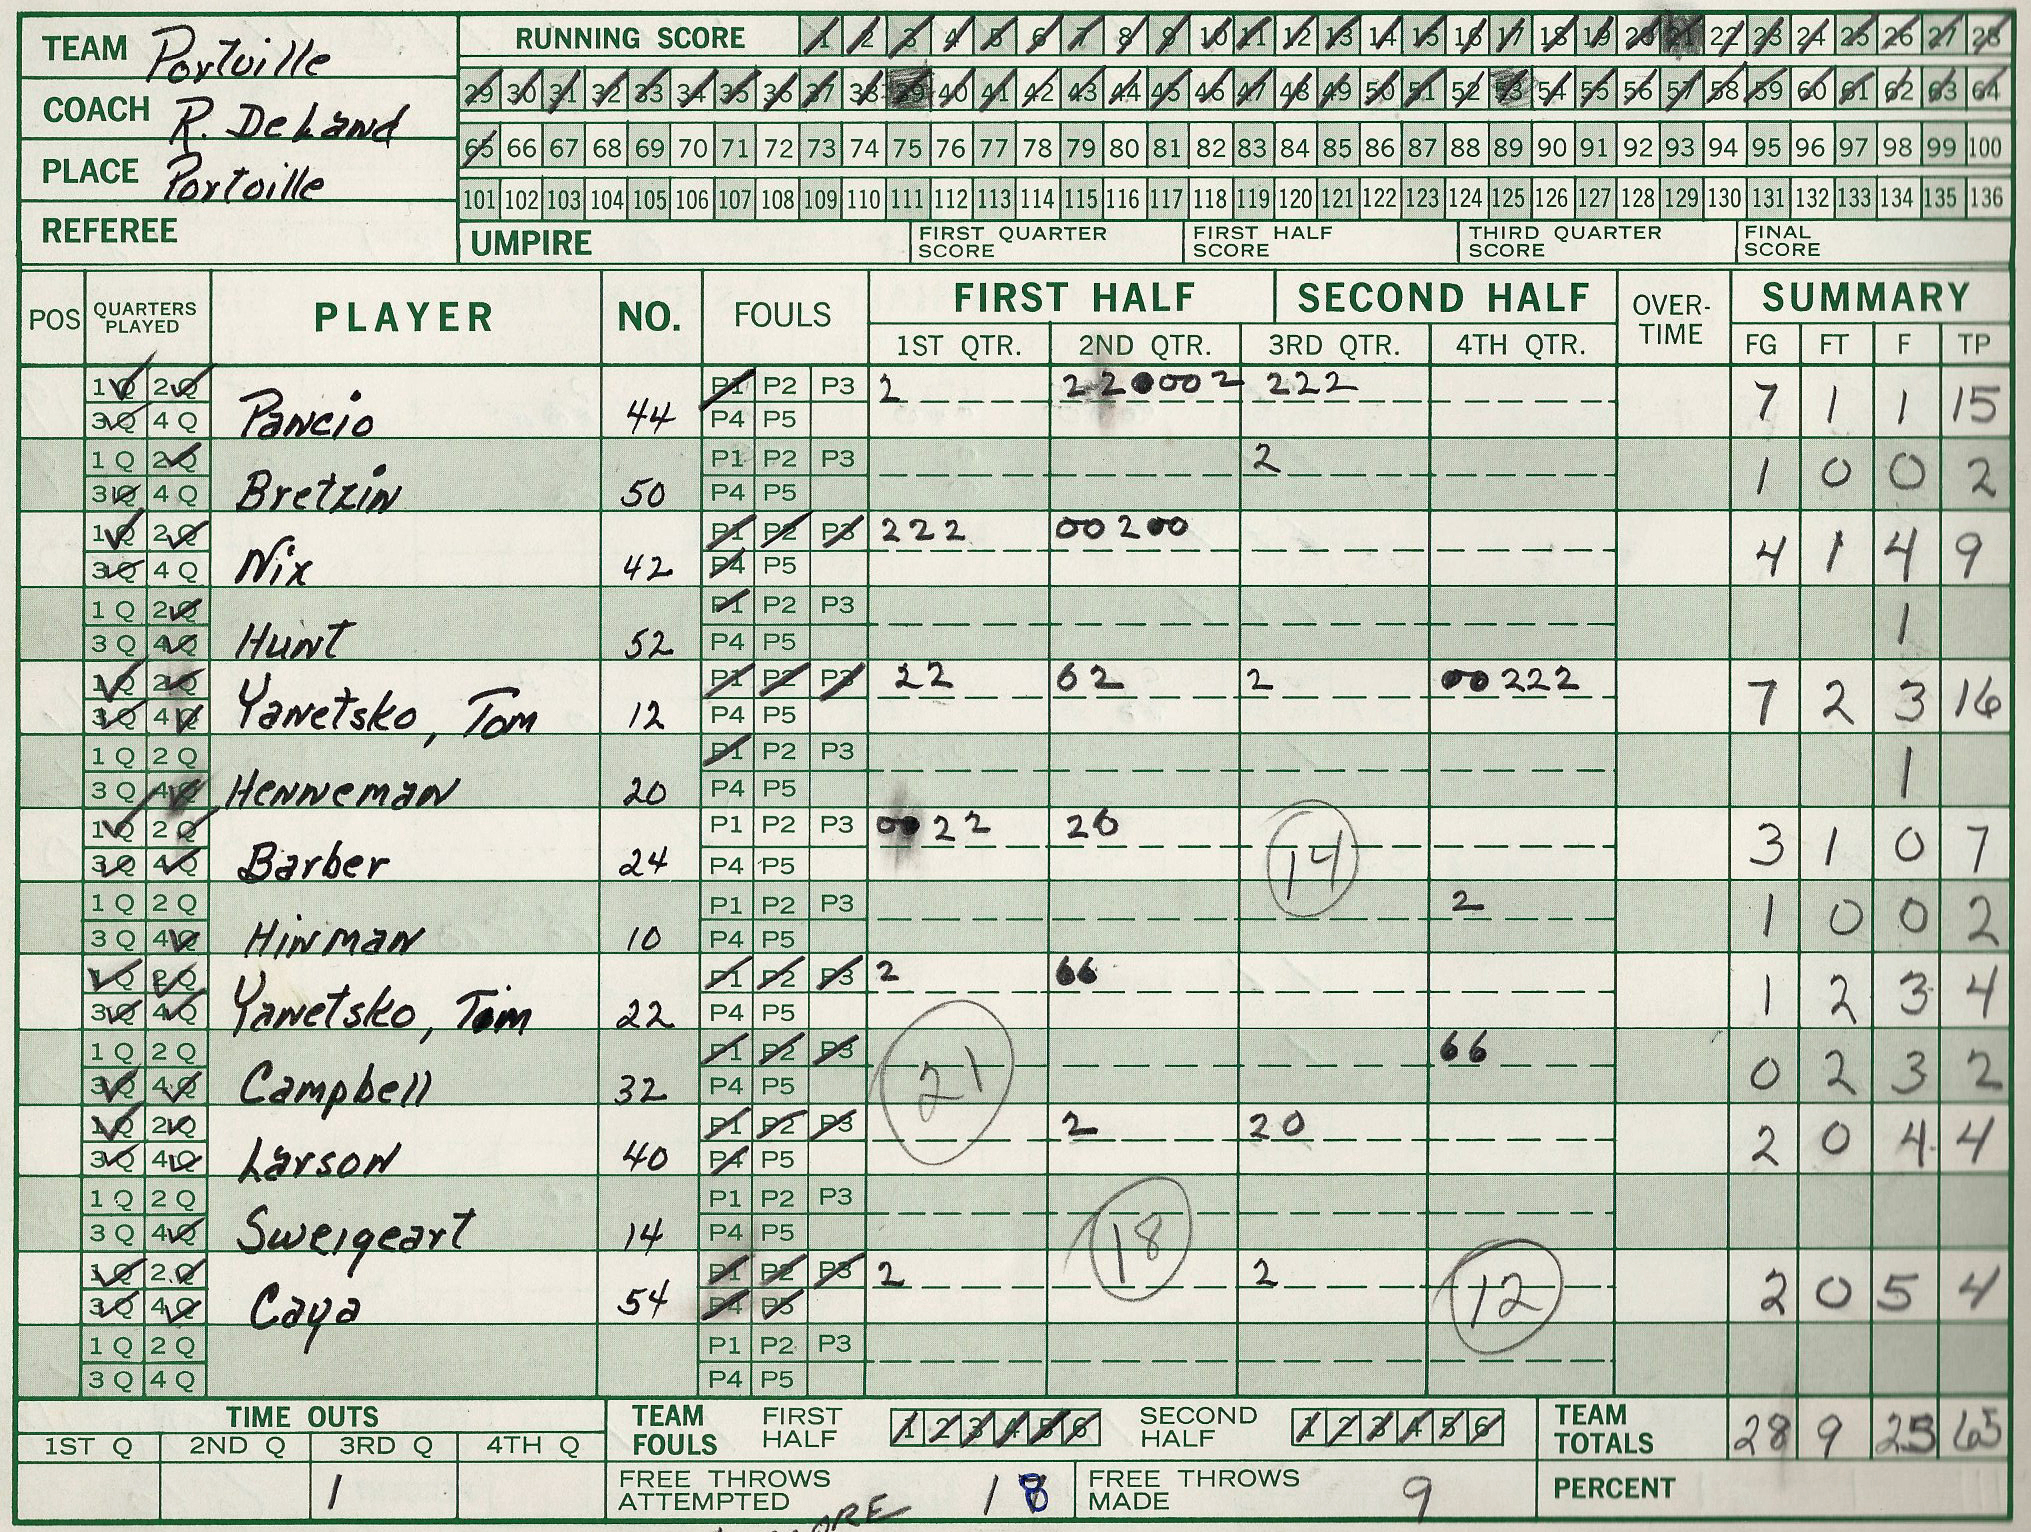 TEAM Portville
COACH R. DeLand
PLACE Portville
REFEREE
RUNNING SCORE 1 2 3 4 5 6 7 8 9 10 11 12 13 14 15 16 17 18 19 20 21 22 23 24 25 26 27 28
29 30 31 32 33 34 35 36 37 38 39 40 41 42 43 44 45 46 47 48 49 50 51 52 53 54 55 56 57 58 59 60 61 62 63 64
65 66 67 68 69 70 71 72 73 74 75 76 77 78 79 80 81 82 83 84 85 86 87 88 89 90 91 92 93 94 95 96 97 98 99 100
101 102 103 104 105 106 107 108 109 110 111 112 113 114 115 116 117 118 119 120 121 122 123 124 125 126 127 128 129 130 131 132 133 134 135 136
UMPIRE FIRST QUARTER SCORE FIRST HALF SCORE THIRD QUARTER SCORE FINAL SCORE
POS QUARTERS PLAYED PLAYER NO. FOULS FIRST HALF SECOND HALF OVER-TIME SUMMARY
1ST QTR. 2ND QTR. 3RD QTR. 4TH QTR. FG FT F TP
1Q 2Q P1 P2 P3 2 2 2 0 0 0 2 2 2 2
3Q 4Q Pancio 44 P4 P5 7 1 1 15
1Q 2Q P1 P2 P3 2
3Q 4Q Bretzin 50 P4 P5 1 0 0 2
1Q 2Q P1 P2 P3 2 2 2 0 0 2 0 0
3Q 4Q Nix 42 P4 P5 4 1 4 9
1Q 2Q P1 P2 P3
3Q 4Q Hunt 52 P4 P5 1
1Q 2Q P1 P2 P3 2 2 6 2 2 0 0 2 2 2
3Q 4Q Yanetsko, Tom 12 P4 P5 7 2 3 16
1Q 2Q P1 P2 P3
3Q 4Q Henneman 20 P4 P5 1
1Q 2Q P1 P2 P3 0 0 2 2 2 6
3Q 4Q Barber 24 P4 P5 14 3 1 0 7
1Q 2Q P1 P2 P3 2
3Q 4Q Hinman 10 P4 P5 1 0 0 2
1Q 2Q P1 P2 P3 2 6 6
3Q 4Q Yanetsko, Tim 22 P4 P5 1 2 3 4
1Q 2Q P1 P2 P3 6 6
3Q 4Q Campbell 32 P4 P5 21 0 2 3 2
1Q 2Q P1 P2 P3 2 2 0
3Q 4Q Larson 40 P4 P5 2 0 4 4
1Q 2Q P1 P2 P3
3Q 4Q Sweigeart 14 P4 P5 18
1Q 2Q P1 P2 P3 2 2
3Q 4Q Caya 54 P4 P5 12 2 0 5 4
1Q 2Q P1 P2 P3
3Q 4Q P4 P5
TIME OUTS TEAM FOULS FIRST HALF 1 2 3 4 5 6 SECOND HALF 1 2 3 4 5 6 TEAM TOTALS 28 9 25 65
1ST Q 2ND Q 3RD Q 4TH Q
1 FREE THROWS ATTEMPTED 18 FREE THROWS MADE 9 PERCENT